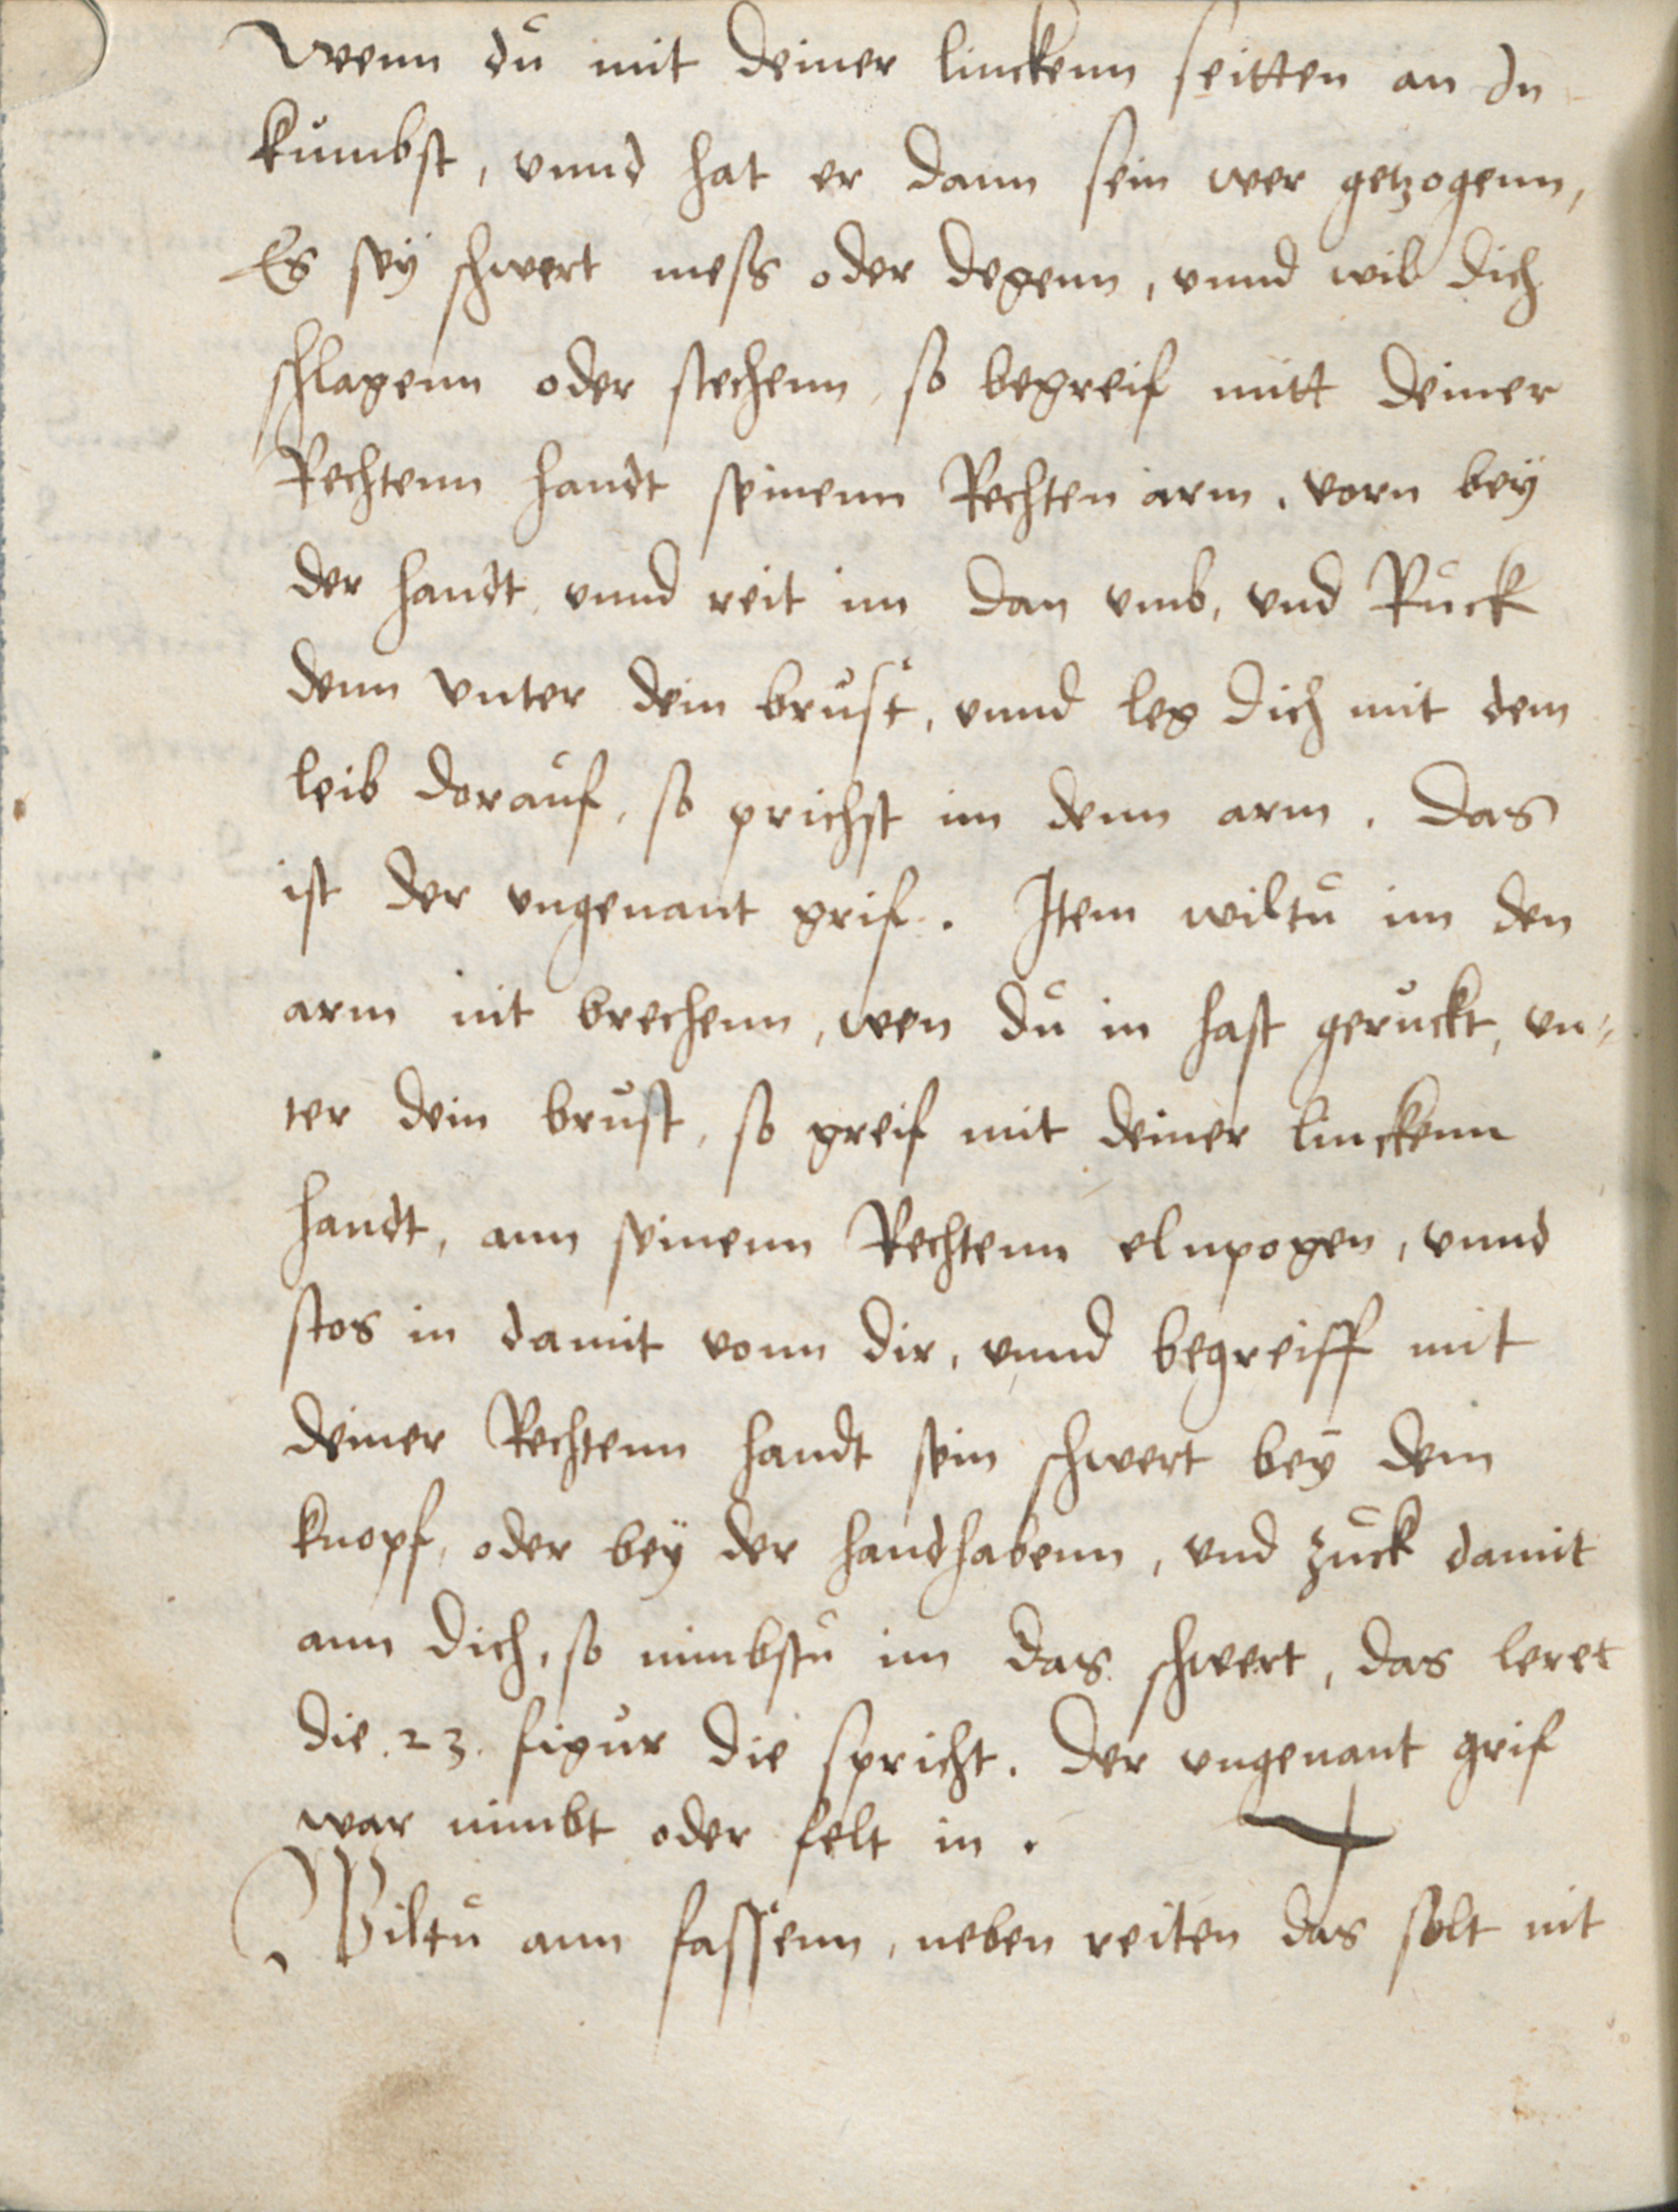 Wenn dů mit deiner linckenn seitten an In
kůmbst, vnnd hat er dann sein wer getzogenn,
Es seÿ schwert mess oder degenn, vnnd wil dich
schlagenn oder stechenn, so begreif mitt deiner
Rechtenn handt seinenn Rechten arm, vorn beÿ
der handt, vnnd reit im dan vmb, vnd Růck
denn vnter dein brůst, vnnd leg dich mit dem
leib dorauf, so prichst im denn arm. Das
ist der vngenant grif. Item wiltů im den
arm nit brechenn, wen dů in hast gerůckt, vn⸗
ter dein brůst, so greif mit deiner linckenn
handt, ann seinenn Rechtenn elnpogen, vnnd
stos in damit vonn dir, vnnd begreiff mit
deiner Rechtenn handt sein schwert beÿ dem
knopf, oder beÿ der handhabenn, vnd zůck damit
ann dich, so nimbstů im das schwert, das leret
die .23. figůr die spricht. Der vngenant grif
war nimbt oder felt in.
Wiltů ann fassenn, neben reiten das solt nit